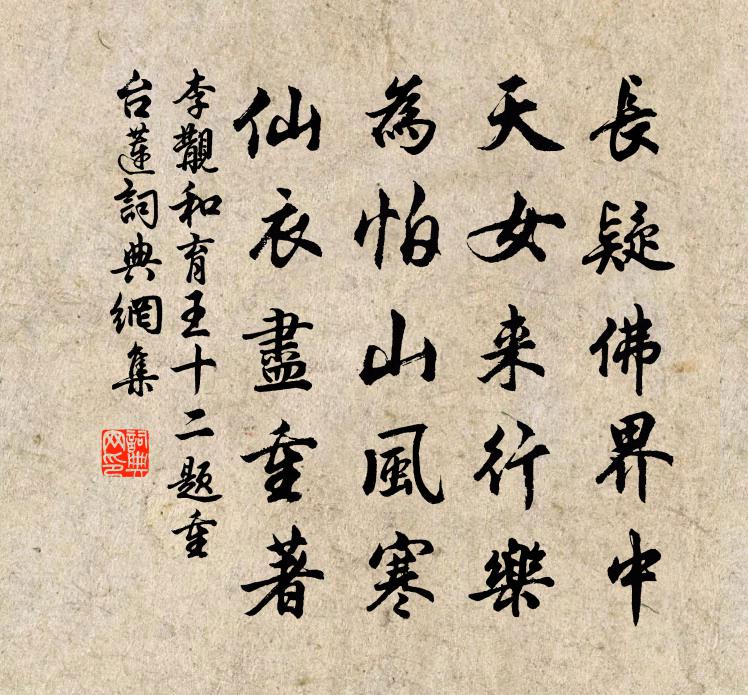 長疑佛界中
天女来行樂
為怕山風寒
仙衣盡重著
李覯和育王十二題重
台蓮詞典網集
詞典網印